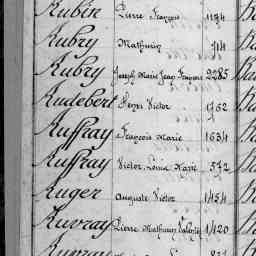 Aubin Pierre François 1174
Aubry Mathurin 714
Aubry Joseph Marie Jean François 9285
Audebert Henri Victor 1762
Auffray François Marie 1634
Auffray Victor Louis Marie 572
Auger Auguste Victor 1454
Auvray Pierre Mathurin 1420
Auvray